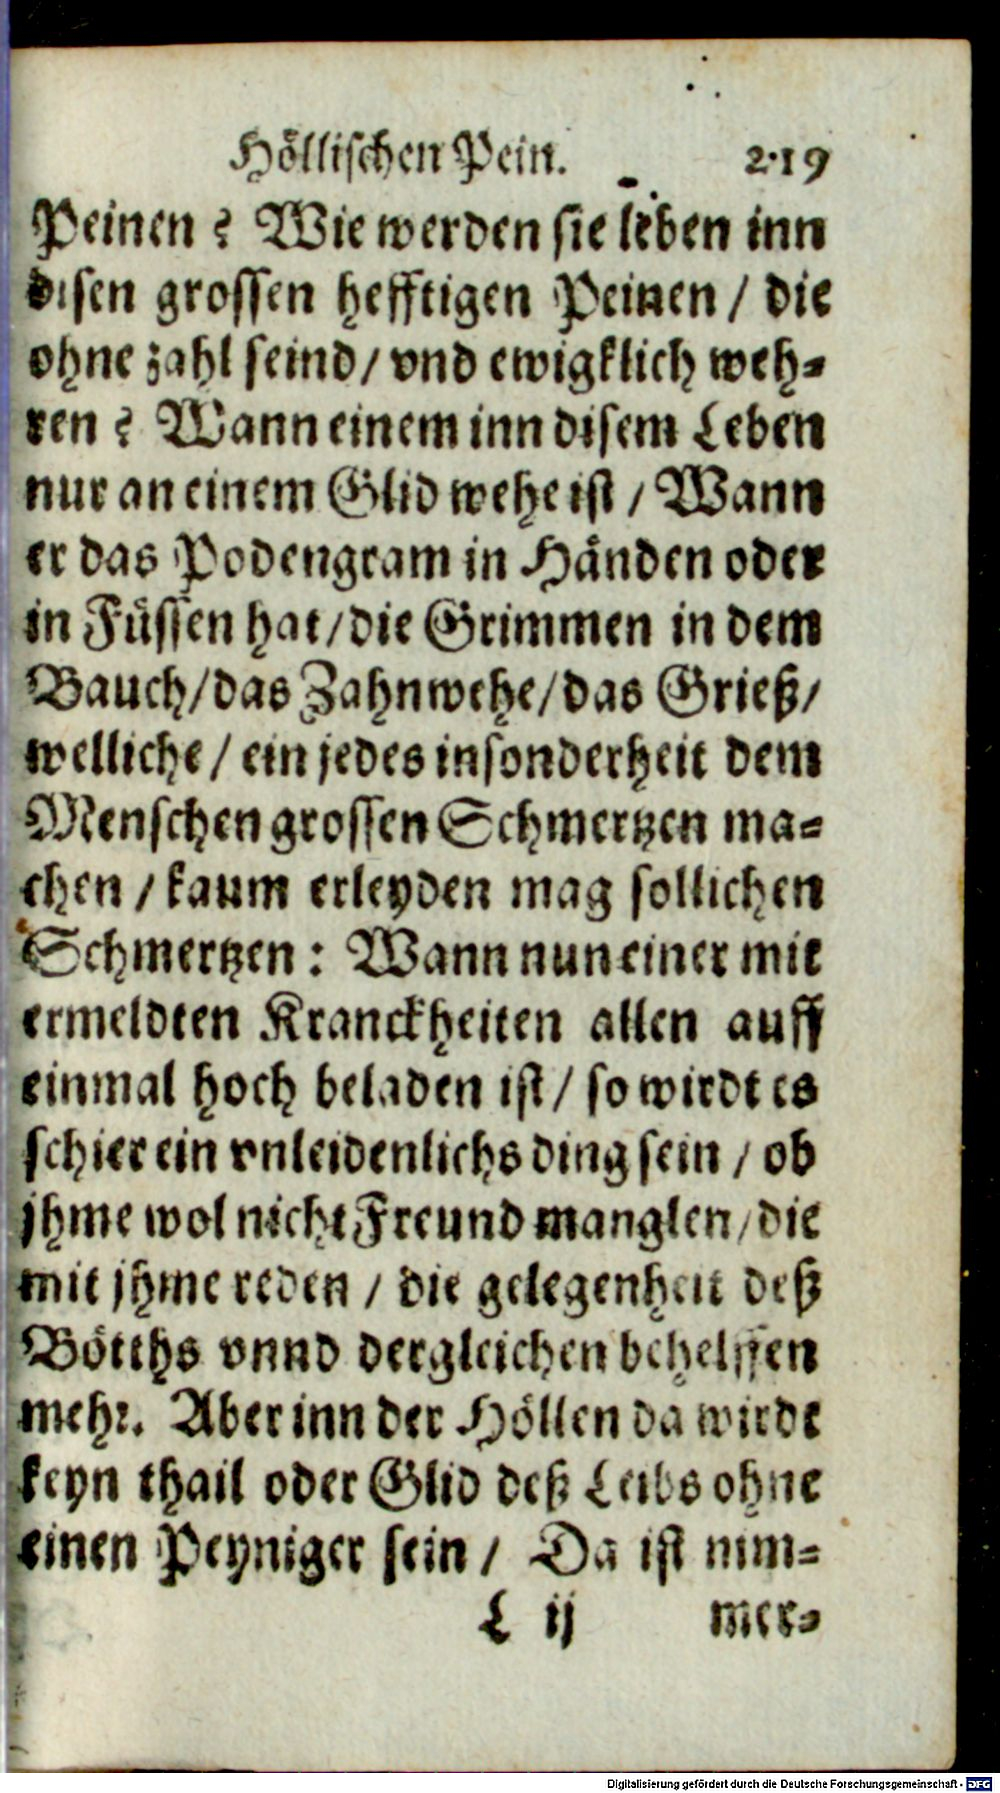 Höllischen Pein. 219
Peinen? Wie werden sie leben inn
disen grossen hefftigen Peinen / die
ohne zahl seind / vnd ewigklich weh-
ren? Wann einem inn disem Leben
nur an einem Glid wehe ist / Wann
er das Podengram in Händen oder
in Füssen hat / die Grimmen in dem
Bauch / das Zahnwehe / das Grieß /
welliche / ein jedes insonderheit dem
Menschen grossen Schmertzen ma-
chen / kaum erleyden mag sollichen
Schmertzen: Wann nun einer mit
ermeldten Kranckheiten allen auff
einmal hoch beladen ist / so wirdt es
schier ein vnleidenlichs ding sein / ob
jhme wol nicht Freund manglen / die
mit jhme reden / die gelegenheit deß
Bötths vnnd dergleichen behelffen
mehr. Aber inn der Höllen da wirdt
keyn thail oder Glid deß Leibs ohne
einen Peyniger sein / Da ist nim-
L ij mer-
Digitalisierung gefördert durch die Deutsche Forschungsgemeinschaft - DFG